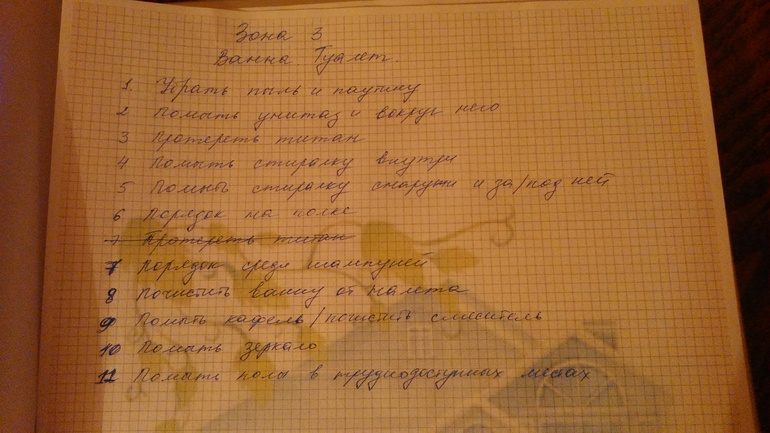 Зона 3
Ванна Туалет.
1. Убрать пыль и паутину
2 Помыть унитаз и вокруг него
3 Протереть титан
4 Помыть стиралку внутри
5 Помыть стиралку снаружи и за/под ней
6 Порядок на полке
7 Протереть титан
7 Порядок среди шампуней
8 Почистить ванну от налета
9 Помыть кафель/почистить смеситель
10 Помыть зеркало
11 Помыть полы в труднодоступных местах